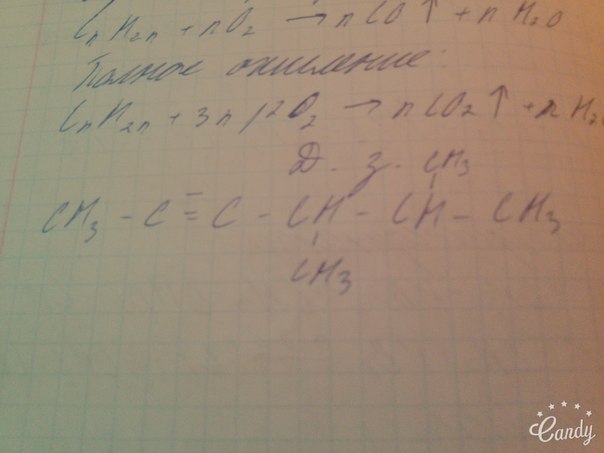 CnH2n + nO2 → nCO↑ + nH2O
Полное окисление:
CnH2n + 3n/2O2 → nCO2↑ + nH2O
Д. з. CH3
CH3 - C ≡ C - CH - CH - CH3
CH3
Candy